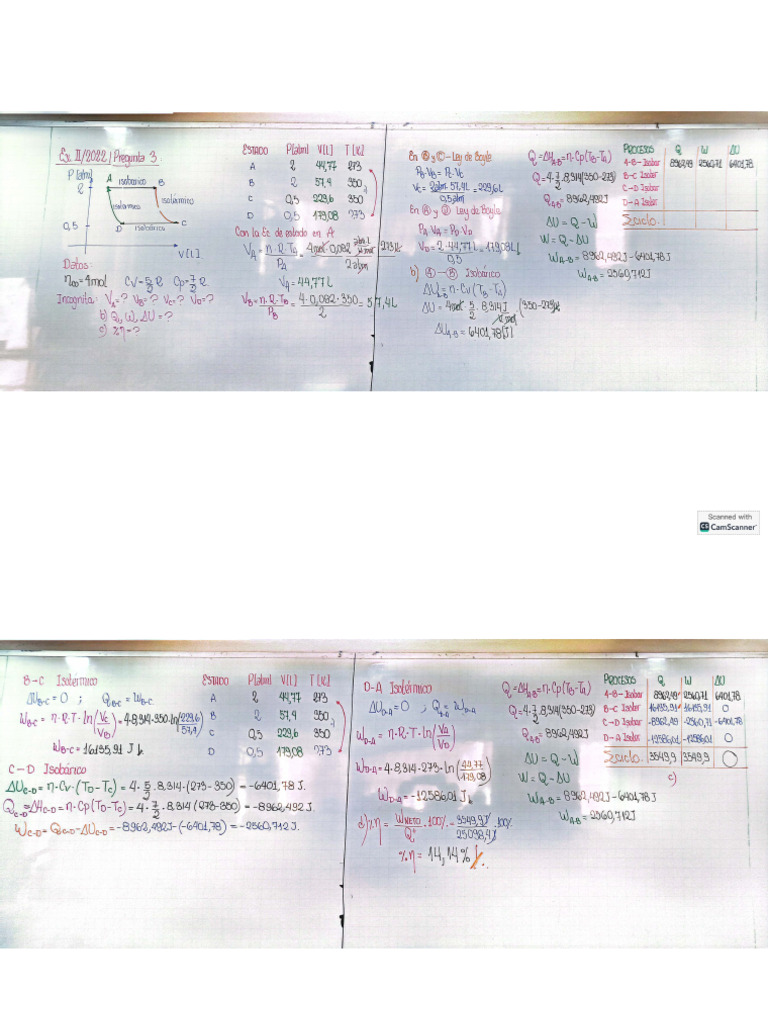 Ex II/2022 | Pregunta 3
P [atm]
2
A isobarico B
isotérmico
isotérmico
0,5
D isobárico C
V[L].
Datos:
n = 4mol Cv = 5/2 R Cp = 7/2 R
Incognita: VA=? VB=? VC=? VD=?
b) Q, W, ΔU = ?
c) %η = ?
ESTADO P[atm] V[L] T [K]
A 2 44,77 273
B 2 57,4 350
C 0,5 229,6 350
D 0,5 179,08 273
Con la Ec de estado en A
VA = n·R·TA/PA = 4mol·0,082 atm·L/K·mol · 273K / 2atm
VA = 44,77L
VB = n·R·TB/PB = 4·0,082·350/2 = 57,4L
En Ⓑ y Ⓒ - Ley de Boyle
PB·VB = PC·VC
VC = 2atm·57,4L/0,5atm = 229,6L
En Ⓐ y Ⓓ Ley de Boyle
PA·VA = PD·VD
VD = 2·44,77L/0,5 = 179,08L
b) Ⓐ - Ⓑ Isobárico
ΔUA-B = n·Cv(TB-TA)
ΔU = 4mol·5/2·8,314 J/K·mol·(350-273)K
ΔUA-B = 6401,78[J]
Q = ΔHA-B = n·Cp(TB-TA)
Q = 4·7/2·8,314(350-273)
QA-B = 8962,492J
ΔU = Q - W
W = Q - ΔU
WA-B = 8962,492J - 6401,78J
WA-B = 2560,712J
PROCESOS Q W ΔU
A-B-Isobar 8962,49 2560,71 6401,78
B-C Isoter
C-D Isobar
D-A Isoter
Σciclo.
Scanned with
CS CamScanner
B-C Isotérmico
ΔUB-C = 0 ; QB-C = WB-C
WB-C = n·R·T·ln(VC/VB) = 4·8,314·350·ln(229,6/57,4)
WB-C = 16135,91 J
C-D Isobárico
ΔUC-D = n·Cv·(TD-TC) = 4·5/2·8,314·(273-350) = -6401,78 J
QC-D = ΔHC-D = n·Cp(TD-TC) = 4·7/2·8,314(273-350) = -8962,492J
WC-D = QC-D - ΔUC-D = -8962,492J - (-6401,78) = -2560,712 J.
ESTADO P[atm] V[L] T [K]
A 2 44,77 273
B 2 57,4 350
C 0,5 229,6 350
D 0,5 179,08 273
D-A Isotérmico
ΔUD-A = 0 ; QD-A = WD-A
WD-A = n·R·T·ln(VA/VD)
WD-A = 4·8,314·273·ln(44,77/179,08)
WD-A = -12586,01 J
d) %η = WNETO/Q+ ·100% = 3549,9J/25098,4J ·100%
%η = 14,14%
Q = ΔHA-B = n·Cp(TB-TA)
Q = 4·7/2·8,314(350-273)
QA-B = 8962,492J
ΔU = Q - W
W = Q - ΔU
WA-B = 8962,492J - 6401,78J
WA-B = 2560,712J
PROCESOS Q W ΔU
A-B-Isobar 8962,49 2560,71 6401,78
B-C Isoter 16135,91 16135,91 0
C-D Isobar -8962,49 -2560,71 -6401,78
D-A Isoter -12586,01 -12586,01 0
Σciclo 3549,9 3549,9 0
c)